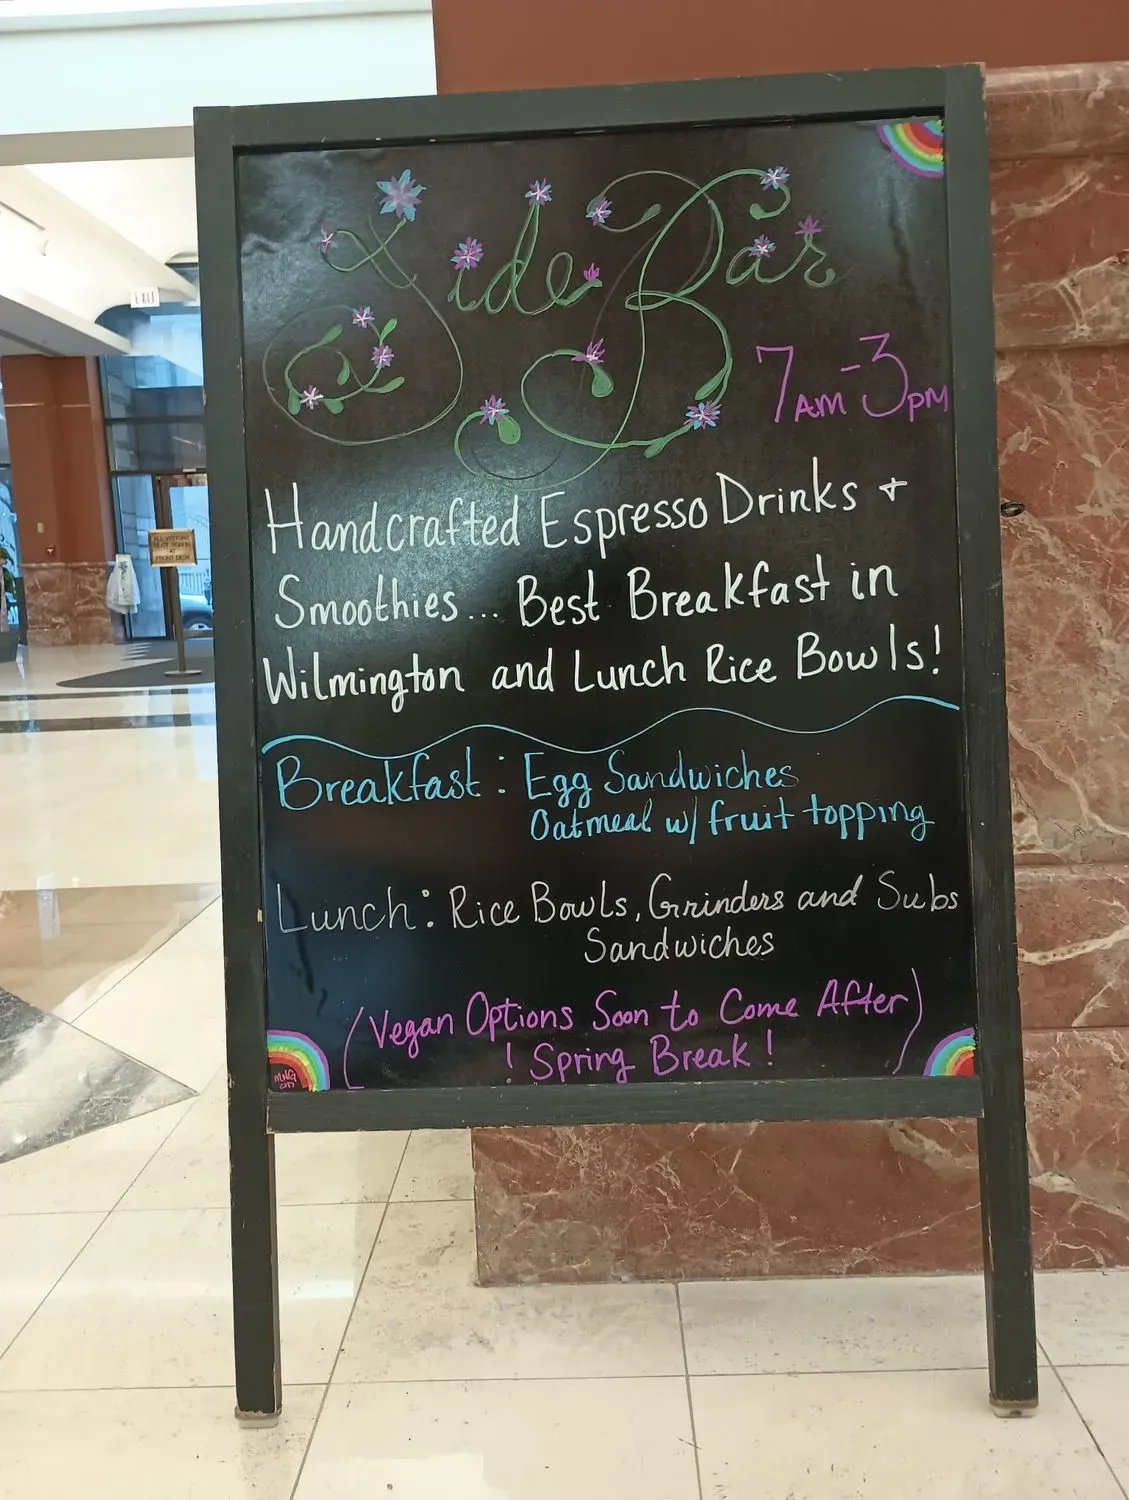 Side Bar
7AM-3PM
Handcrafted Espresso Drinks +
Smoothies... Best Breakfast in
Wilmington and Lunch Rice Bowls!
Breakfast: Egg Sandwiches
Oatmeal w/ fruit topping
Lunch: Rice Bowls, Grinders and Subs
Sandwiches
(Vegan Options Soon to Come After)
! Spring Break !
EXIT
ALL VISITORS
MUST SIGN IN
AT
FRONT DESK